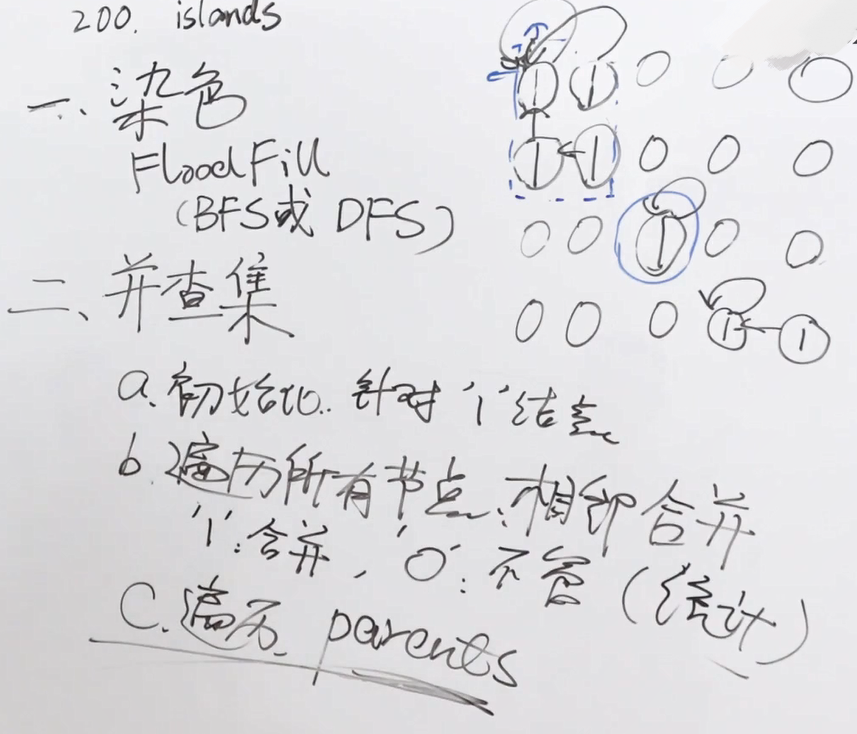 200. islands
一、染色
FloodFill
(BFS或 DFS)
二、并查集
a. 初始化. 针对 '1' 结点
b. 遍历所有节点、相邻合并
'1': 合并, '0': 不管 (统计)
C. 遍历 parents
1 1 0 0 0
1 1 0 0 0
0 0 1 0 0
0 0 0 1 1